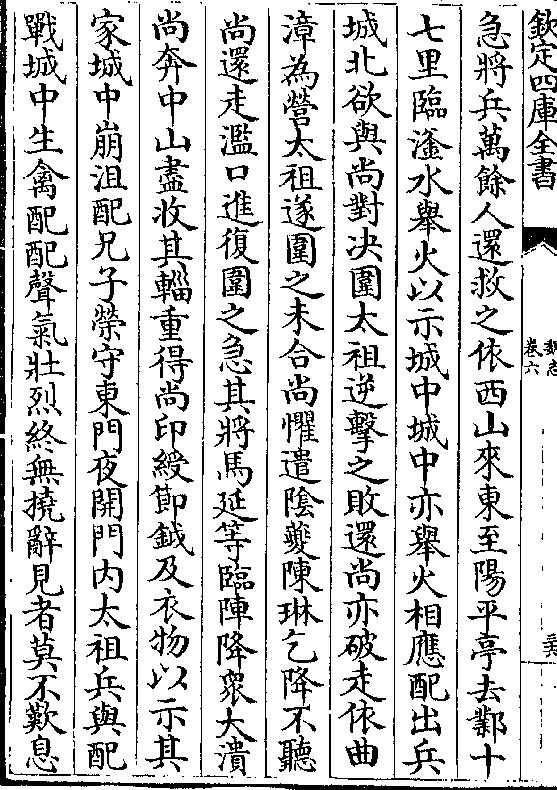 欽定四庫全書
魏志
卷六
急將兵萬餘人還救之依西山來東至陽平亭去鄴十
七里臨滏水舉火以示城中城中亦舉火相應配出兵
城北欲與尚對決圍太祖逆擊之敗還尚亦破走依曲
漳為營太祖遂圍之未合尚懼遣陰夔陳琳乞降不聽
尚還走濫口進復圍之急其將馬延等臨陣降衆大潰
尚奔中山盡收其輜重得尚印綬節鉞及衣物以示其
家城中崩沮配兄子榮守東門夜開門内太祖兵與配
戰城中生禽配配聲氣壯烈終無撓辭見者莫不歎息